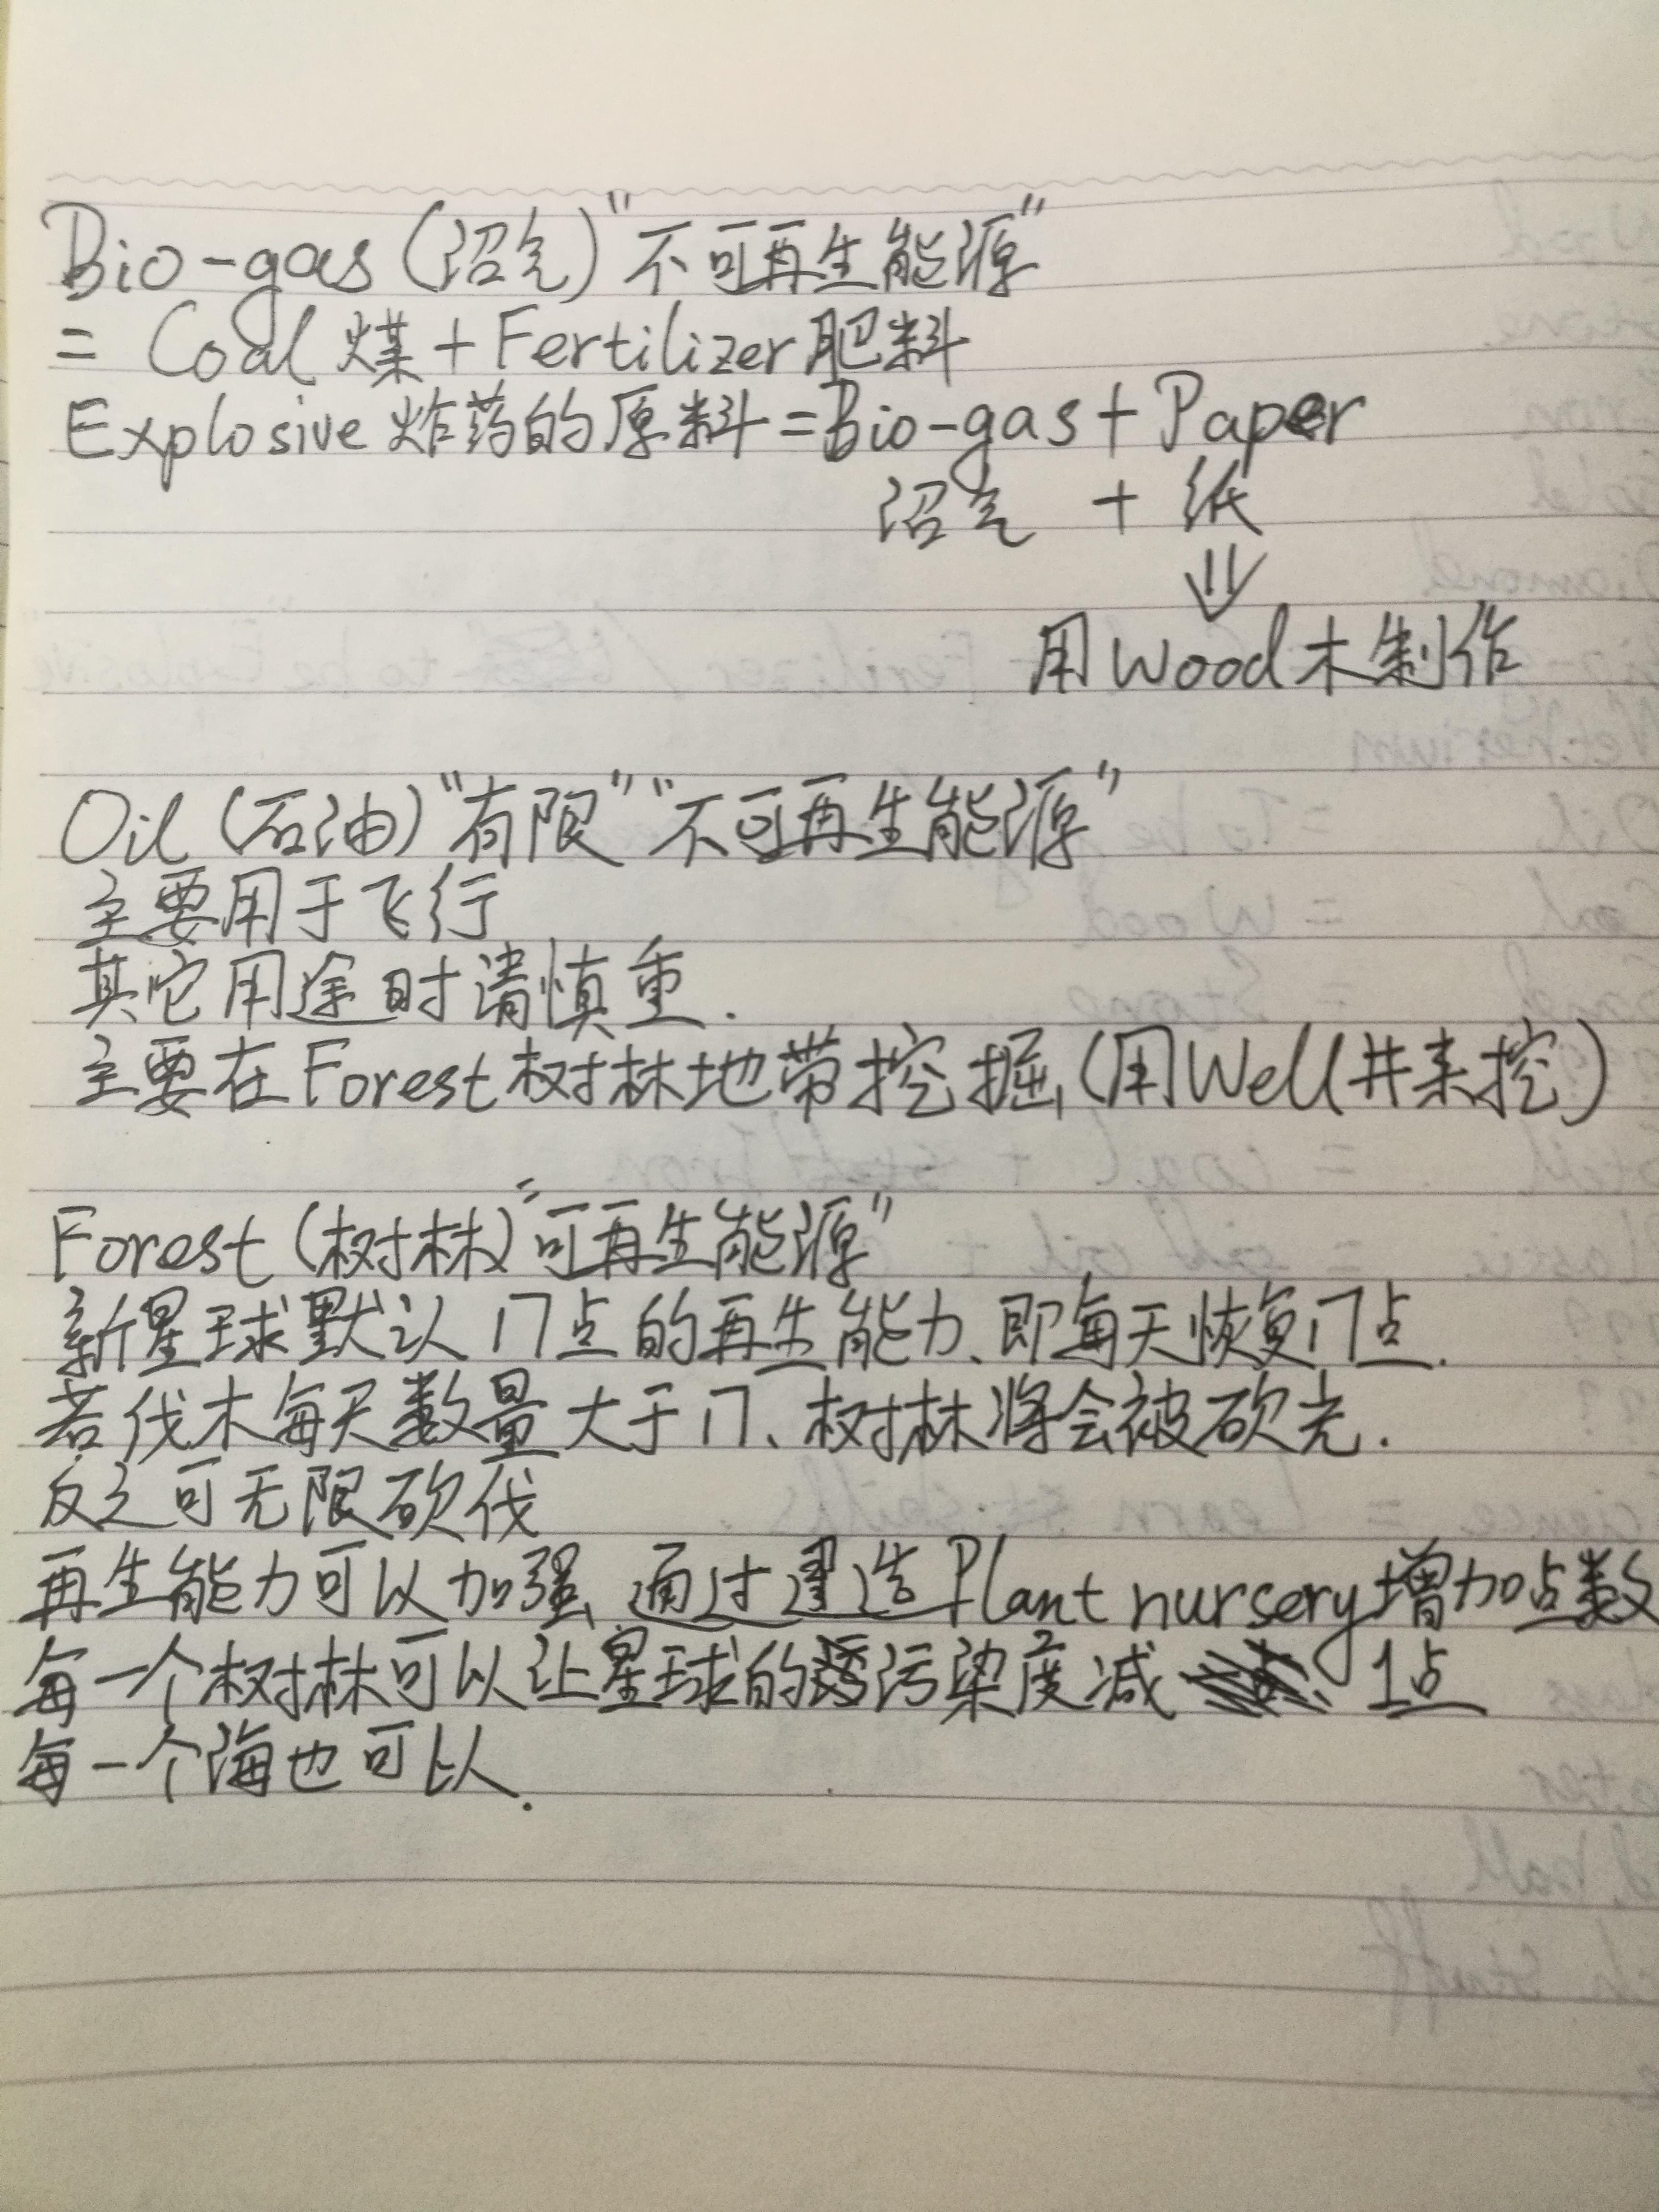 Bio-gas (沼气)"不可再生能源"
= Coal 煤 + Fertilizer 肥料
Explosive 炸药的原料 = Bio-gas + Paper
沼气 + 纸
⇓
用Wood木制作
Oil (石油)"有限""不可再生能源"
主要用于飞行
其它用途时请慎重.
主要在Forest树林地带挖掘(用Well井来挖)
Forest (树林)"可再生能源"
新星球默认17点的再生能力、即每天恢复17点.
若伐木每天数量大于17、树林将会被砍光.
反之可无限砍伐
再生能力可以加强、通过建造Plant nursery增加点数
每一个树林可以让星球的污染度减 1点
每一个海也可以.